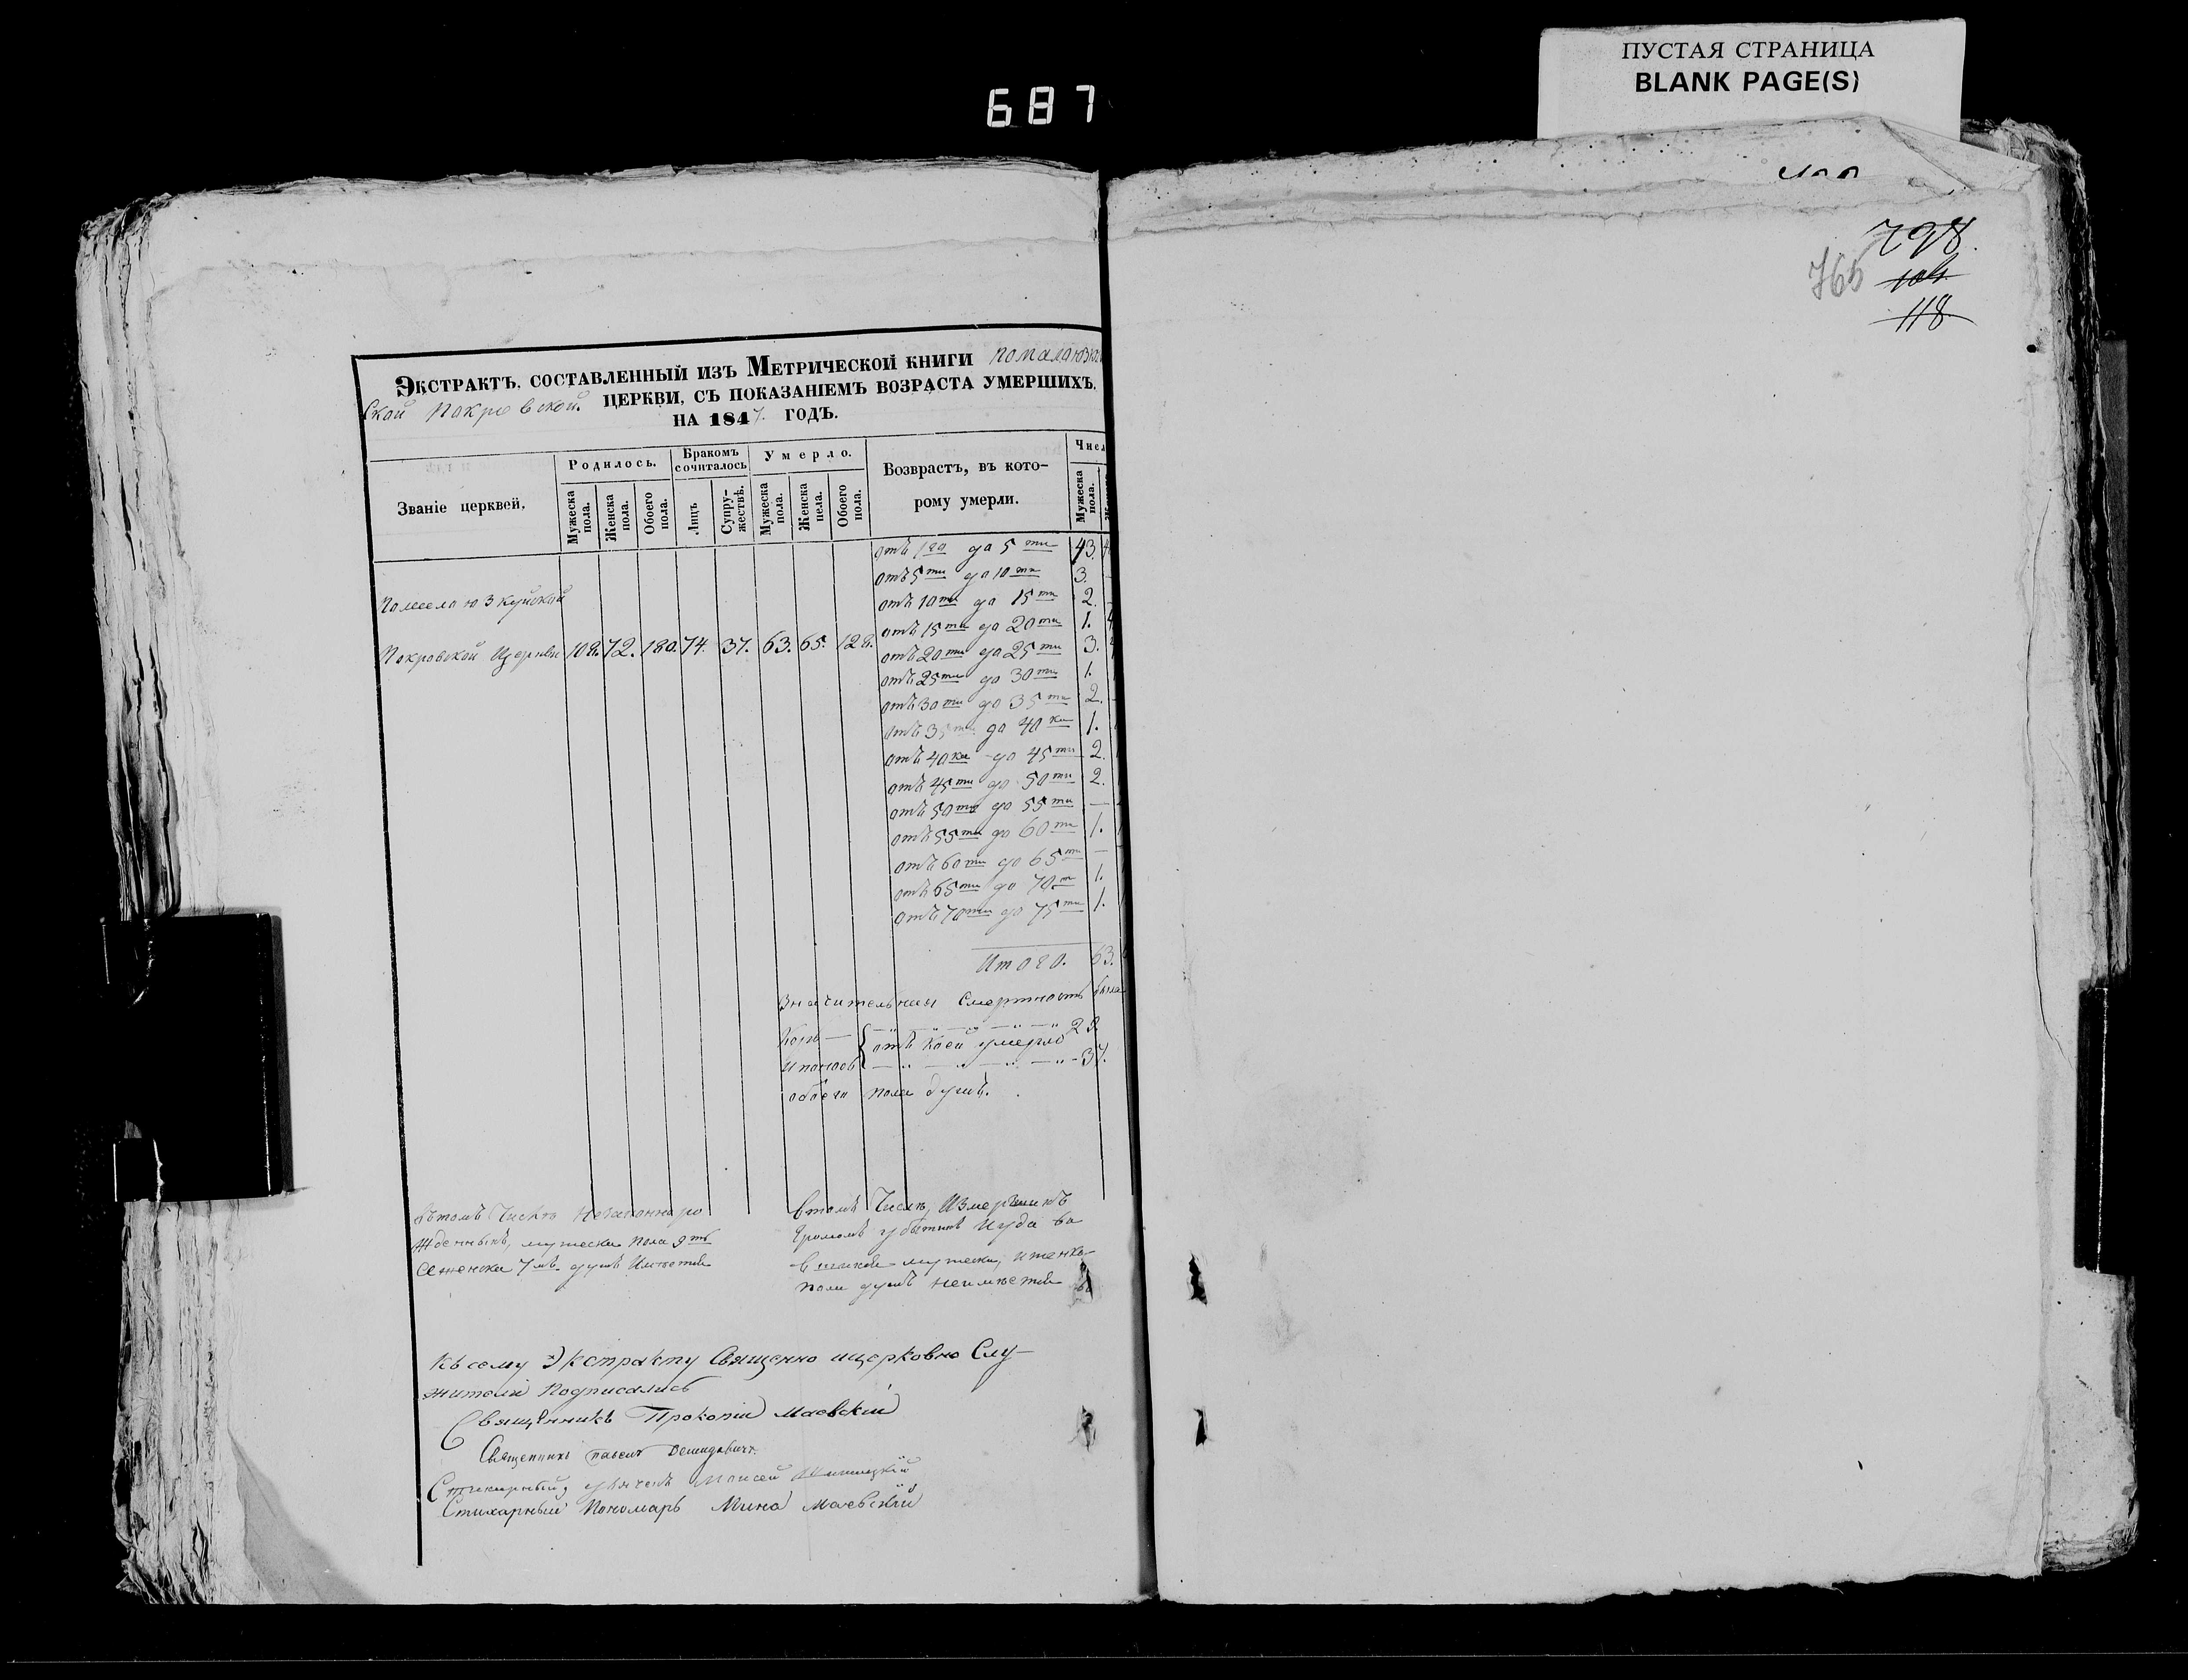 ПУСТАЯ СТРАНИЦА
BLANK PAGE(S)
687
798.
765
104.
118
Экстрактъ, составленный изъ Метрической книги помалаюзку
ской Покровской церкви, съ показаніемъ возраста умершихъ,
на 1847. годъ.
Званіе церквей.
Родилось.
Бракомъ сочиталось
Умерло.
Возврастъ, въ котo-
рому умерли.
Числ
Мужеска пола.
Женска пола.
Обоего пола.
Лицъ
Супру-жествъ.
Мужеска пола.
Женска пола.
Обоего пола.
Мужеска пола.
отъ 1го до 5ти 43.
отъ 5ти до 10ти 3.
отъ 10ти до 15ти 2.
отъ 15ти до 20ти 1.
отъ 20ти до 25ти 3.
отъ 25ти до 30ти 1.
отъ 30ти до 35ти 2.
отъ 35ти до 40ка 1.
отъ 40ка до 45ти 2.
отъ 45ти до 50ти 2.
отъ 50ти до 55ти —
отъ 55ти до 60ти 1.
отъ 60ти до 65ти —
отъ 65ти до 70ти 1.
отъ 70ти до 75ти 1.
Покровской Церкви 108. 72. 180. 74. 37. 63. 65. 128.
Итого. 63.
Значительная Смертность была
Корь
отъ коей умерло
и поносъ 37.
обоего пола душъ.
Втомъ Числѣ Незаконноро
жденныхъ, мужеска пола 9ть
Въ томъ Числѣ, Измершихъ
громомъ убитыхъ
пола душъ
Къ сему Экстракту Священно ицерковно Слу-
жители Подписались
Священникъ Прокопій Маевскій
Священникъ Павелъ
Стихарный дьячекъ Моисей
Стихарный Пономарь Мина Маевскій